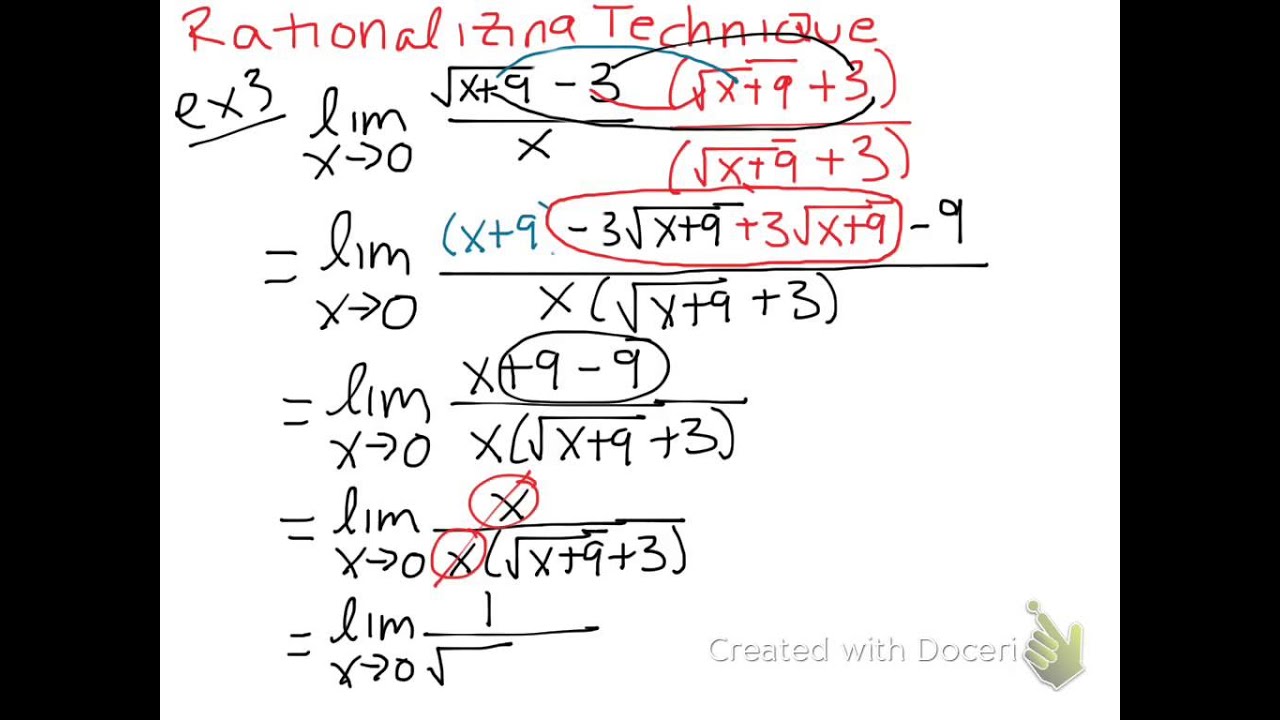 Rationalizing Technique
ex3 lim x→0 √x+9 - 3 / x (√x+9 + 3) / (√x+9 + 3)
= lim x→0 (x+9) - 3√x+9 + 3√x+9 - 9 / x(√x+9 + 3)
= lim x→0 x+9-9 / x(√x+9 + 3)
= lim x→0 x / x(√x+9 + 3)
= lim x→0 1 / √
Created with Doceri